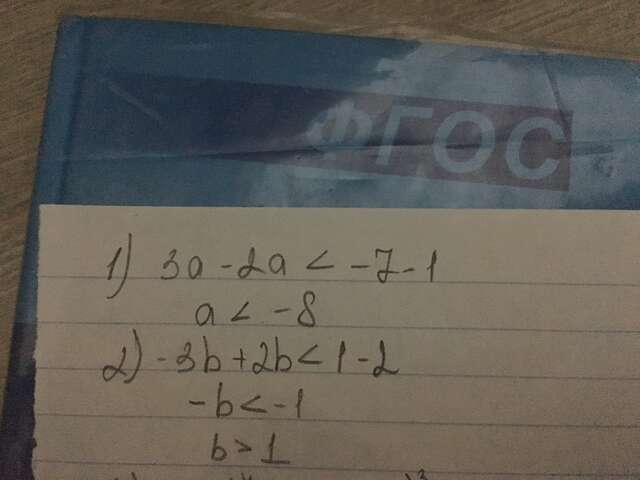 ФГОС
1) 3a - 2a < -7-1
a < -8
2) -3b + 2b < 1-2
-b < -1
b > 1